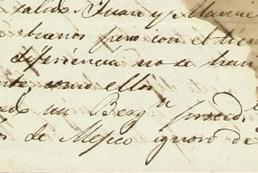 salió. Juan y Manue
buenos pero con el tiem
diferiencia no se han
como ellos
un Berg.n proced.
de Mejico ignoro de